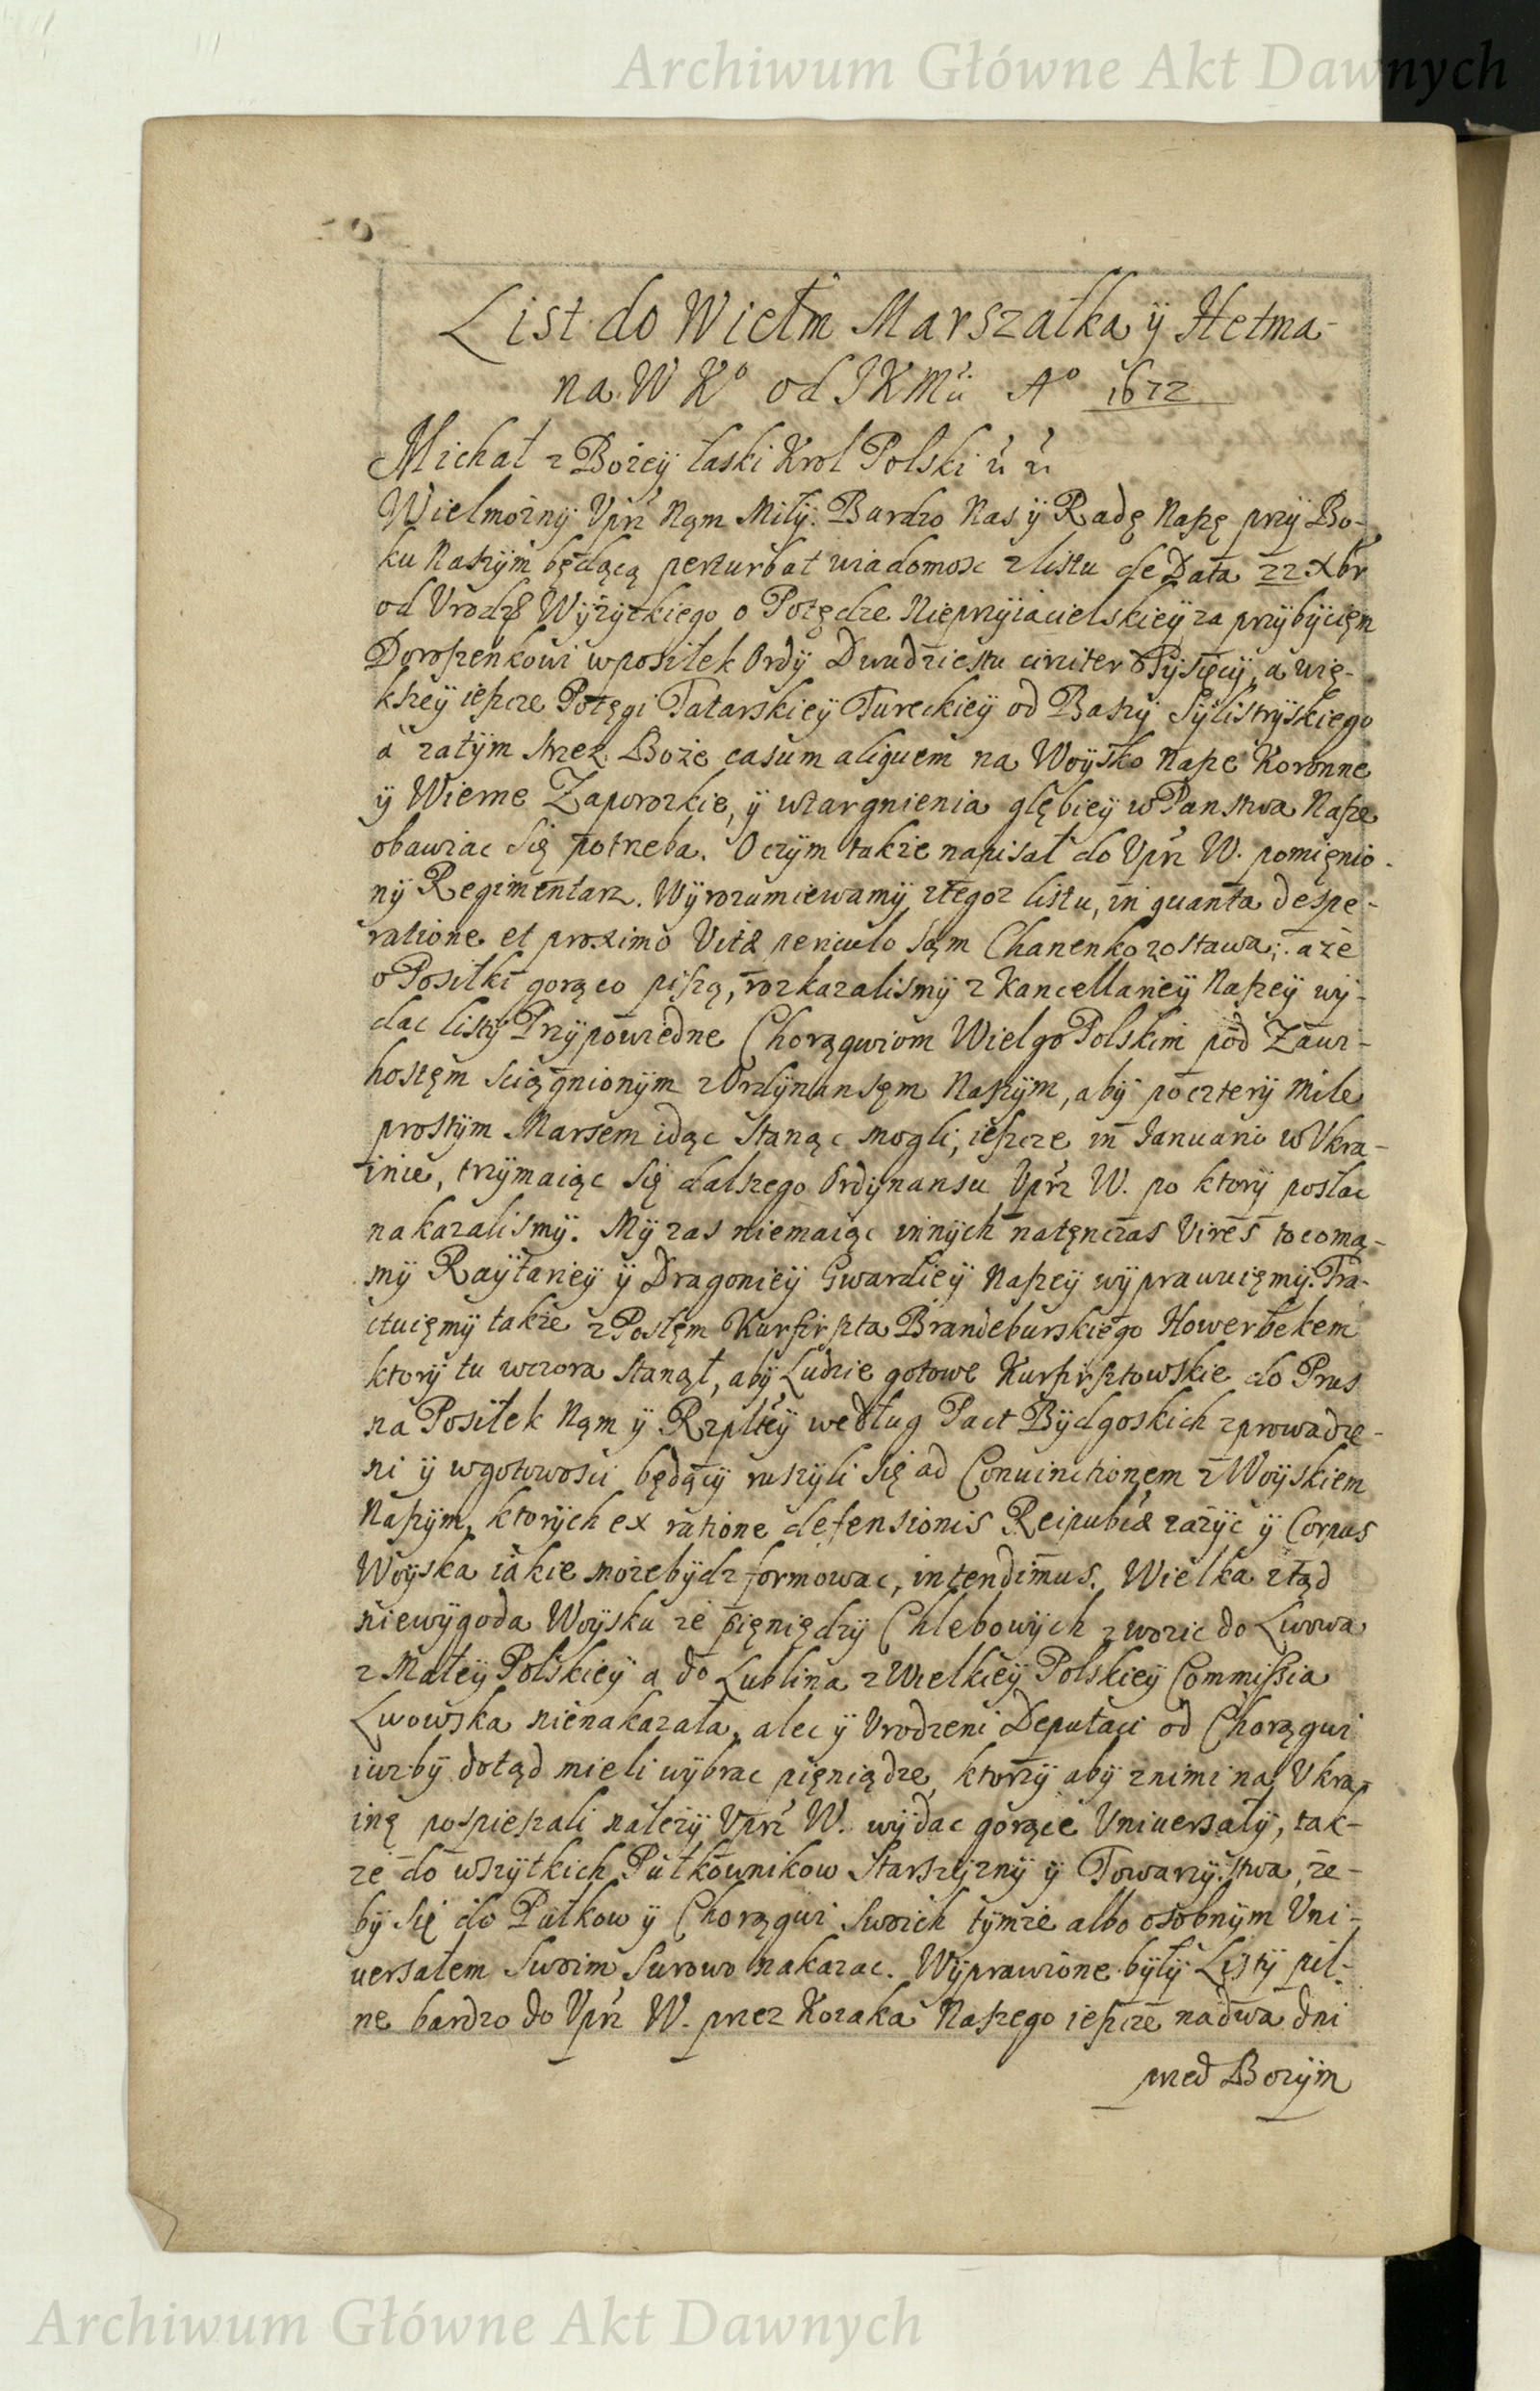 Archiwum Główne Akt Dawnych
List do Wielm Marszałka ÿ Hetma-
na W Kº od JKMći Aº 1672
Michał z Bożeÿ łaski Krol Polski ći ći
Wielmożnÿ Vprź Nąm Miłÿ. Bardzo Nas ÿ Radę Naszę przÿ Bo-
ku Naszÿm będącą perturbat wiadomosc z listu de Data 22 Xbr
od Vrodz Wÿżÿckiego o Potędze Nieprzÿiacielskieÿ za przÿbÿcięm
Doroszenkowi w posiłek Ordÿ Dwudziestu circiter Tÿsięcÿ, a wię-
kszeÿ ieszcze Potęgi Tatarskieÿ Tureckieÿ od Baszÿ Sÿlistrÿskiego
á zatÿm strzez Boże casum aliquem na Woÿsko Nasze Koronne
ÿ Wierne Zaporozkie, ÿ wtargnienia głębieÿ w Panstwa Nasze
obawiac się potrzeba. O czÿm także napisał do Vprź W. pomięnio-
nÿ Regimentarz. Wÿrozumiewamÿ z tegoz listu, in quanta despe-
ratione et proximo Vitæ periculo sąm Chanenko zostawa; a że
o Posiłki gorąco piszą, rozkazalismÿ z Kancellarieÿ Naszeÿ wÿ-
dac listÿ Przÿpowiedne Chorągwiom WielgoPolskim pod Zawi-
hostęm sciągnionÿm z Ordÿnansęm Naszÿm, abÿ po czterÿ mile
prostÿm Marsem idąc stanąc mogli, ieszcze in Januario w Vkra-
inie, trzÿmaiąc się dalszego Ordÿnansu Vprź W. po ktorÿ posłac
nakazalismÿ. Mÿ zas niemaiąc innÿch natęnczas Vires to co mą-
mÿ Raÿtarieÿ ÿ Dragonieÿ Gwardieÿ Naszeÿ wÿprawuięmÿ. Tra-
ctuięmÿ także z Posłęm Kurfirszta Brandeburskiego Howerbekem
ktorÿ tu wczora stanął, abÿ Ludzie gotowe Kurfirsztowskie do Prus
na Posiłek Nąm ÿ Rzpltéÿ według Pact Bÿdgoskich zprowadze-
ni ÿ w gotowosci będącÿ ruszÿli się ad Conuinctionem z Woÿskiem
Naszÿm, ktorÿch ex ratione defensionis Reipublcæ zażÿc ÿ Corpus
Woÿska iakie możebÿdz formowac, intendimus. Wielka ztąd
niewÿgoda Woÿsku że pięniędzÿ Chlebowÿch zwozic do Lwowa
z Małeÿ Polskieÿ a do Lublina z Wielkieÿ Polskieÿ Commissia
Lwowska nienakazała, alec ÿ Vrodzeni Deputaci od Chorągwi
iuzbÿ dotąd mieli wÿbrac pięniądze, ktorzÿ abÿ z nimi na Vkra-
inę pospieszali należÿ Vprź W. wÿdac gorące Vniuersałÿ, tak-
że do wszÿtkich Pułkownikow Starszÿznÿ ÿ Towarzÿstwa, że-
bÿ się do Pułkow ÿ Chorągwi swoich tÿmże albo osobnÿm Vni-
uersałem swoim surowo nakazac. Wÿprawione bÿłÿ Listÿ pil-
ne bardzo do Vprź W. przez Kozaka Naszego ieszcze na dwa dni
przed Bozÿm
Archiwum Główne Akt Dawnych